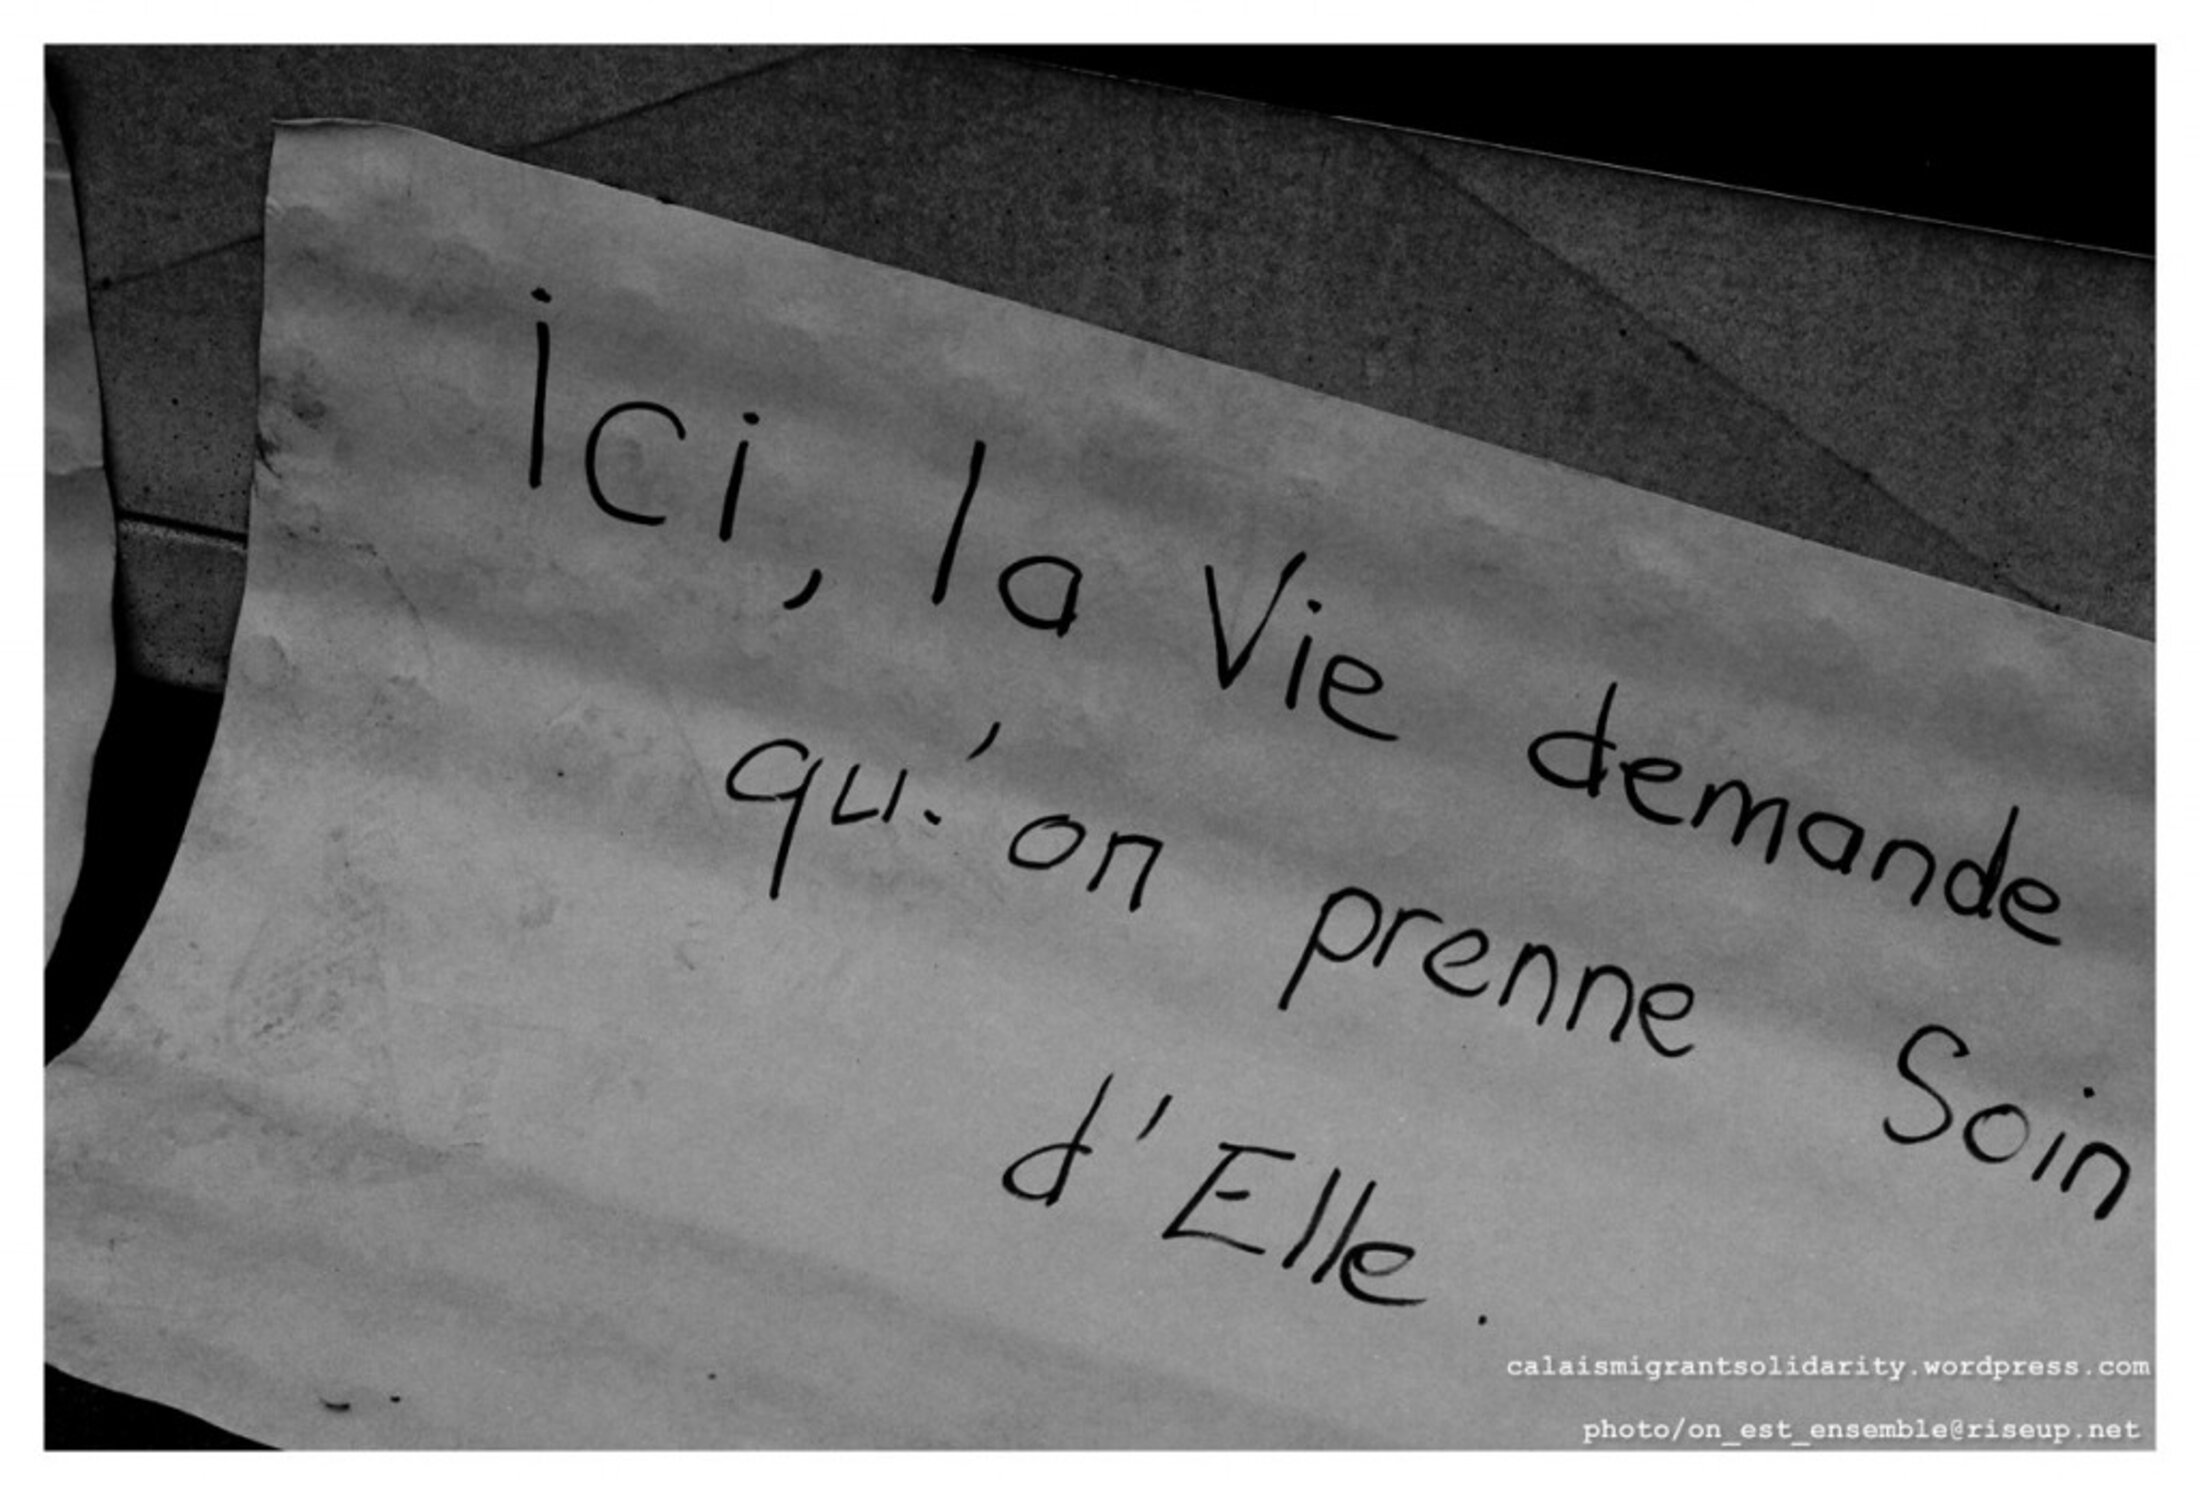 Ici, la Vie demande
qu'on prenne Soin
d'Elle.
calaismigrantsolidarity.wordpress.com
photo/on_est_ensemble@riseup.net